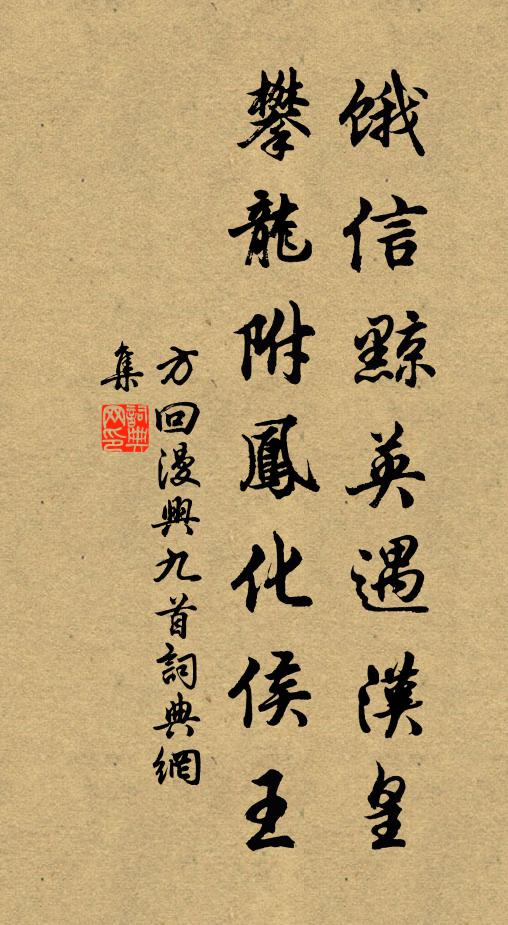 餓信黥英遇漢皇
攀龍附鳳化侯王
方回漫興九首詞典網
集
詞典網印